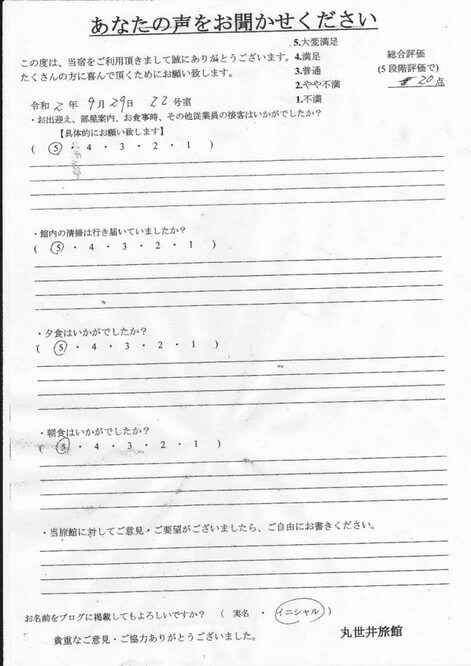 あなたの声をお聞かせください
この度は、当宿をご利用頂きまして誠にありがとうございます。
たくさんの方に喜んで頂くためにお願い致します。
5.大変満足
4.満足
3.普通
2.やや不満
1.不満
総合評価
(5段階評価で)
20点
令和2年 9月29日 22号室
・お出迎え、部屋案内、お食事時、その他従業員の接客はいかがでしたか?
【具体的にお願い致します】
( 5 ・ 4 ・ 3 ・ 2 ・ 1 )
・館内の清掃は行き届いていましたか?
( 5 ・ 4 ・ 3 ・ 2 ・ 1 )
・夕食はいかがでしたか?
( 5 ・ 4 ・ 3 ・ 2 ・ 1 )
・朝食はいかがでしたか?
( 5 ・ 4 ・ 3 ・ 2 ・ 1 )
・当旅館に対してご意見・ご要望がございましたら、ご自由にお書きください。
お名前をブログに掲載してもよろしいですか? ( 実名 ・ イニシャル )
貴重なご意見・ご協力ありがとうございました。
丸世井旅館